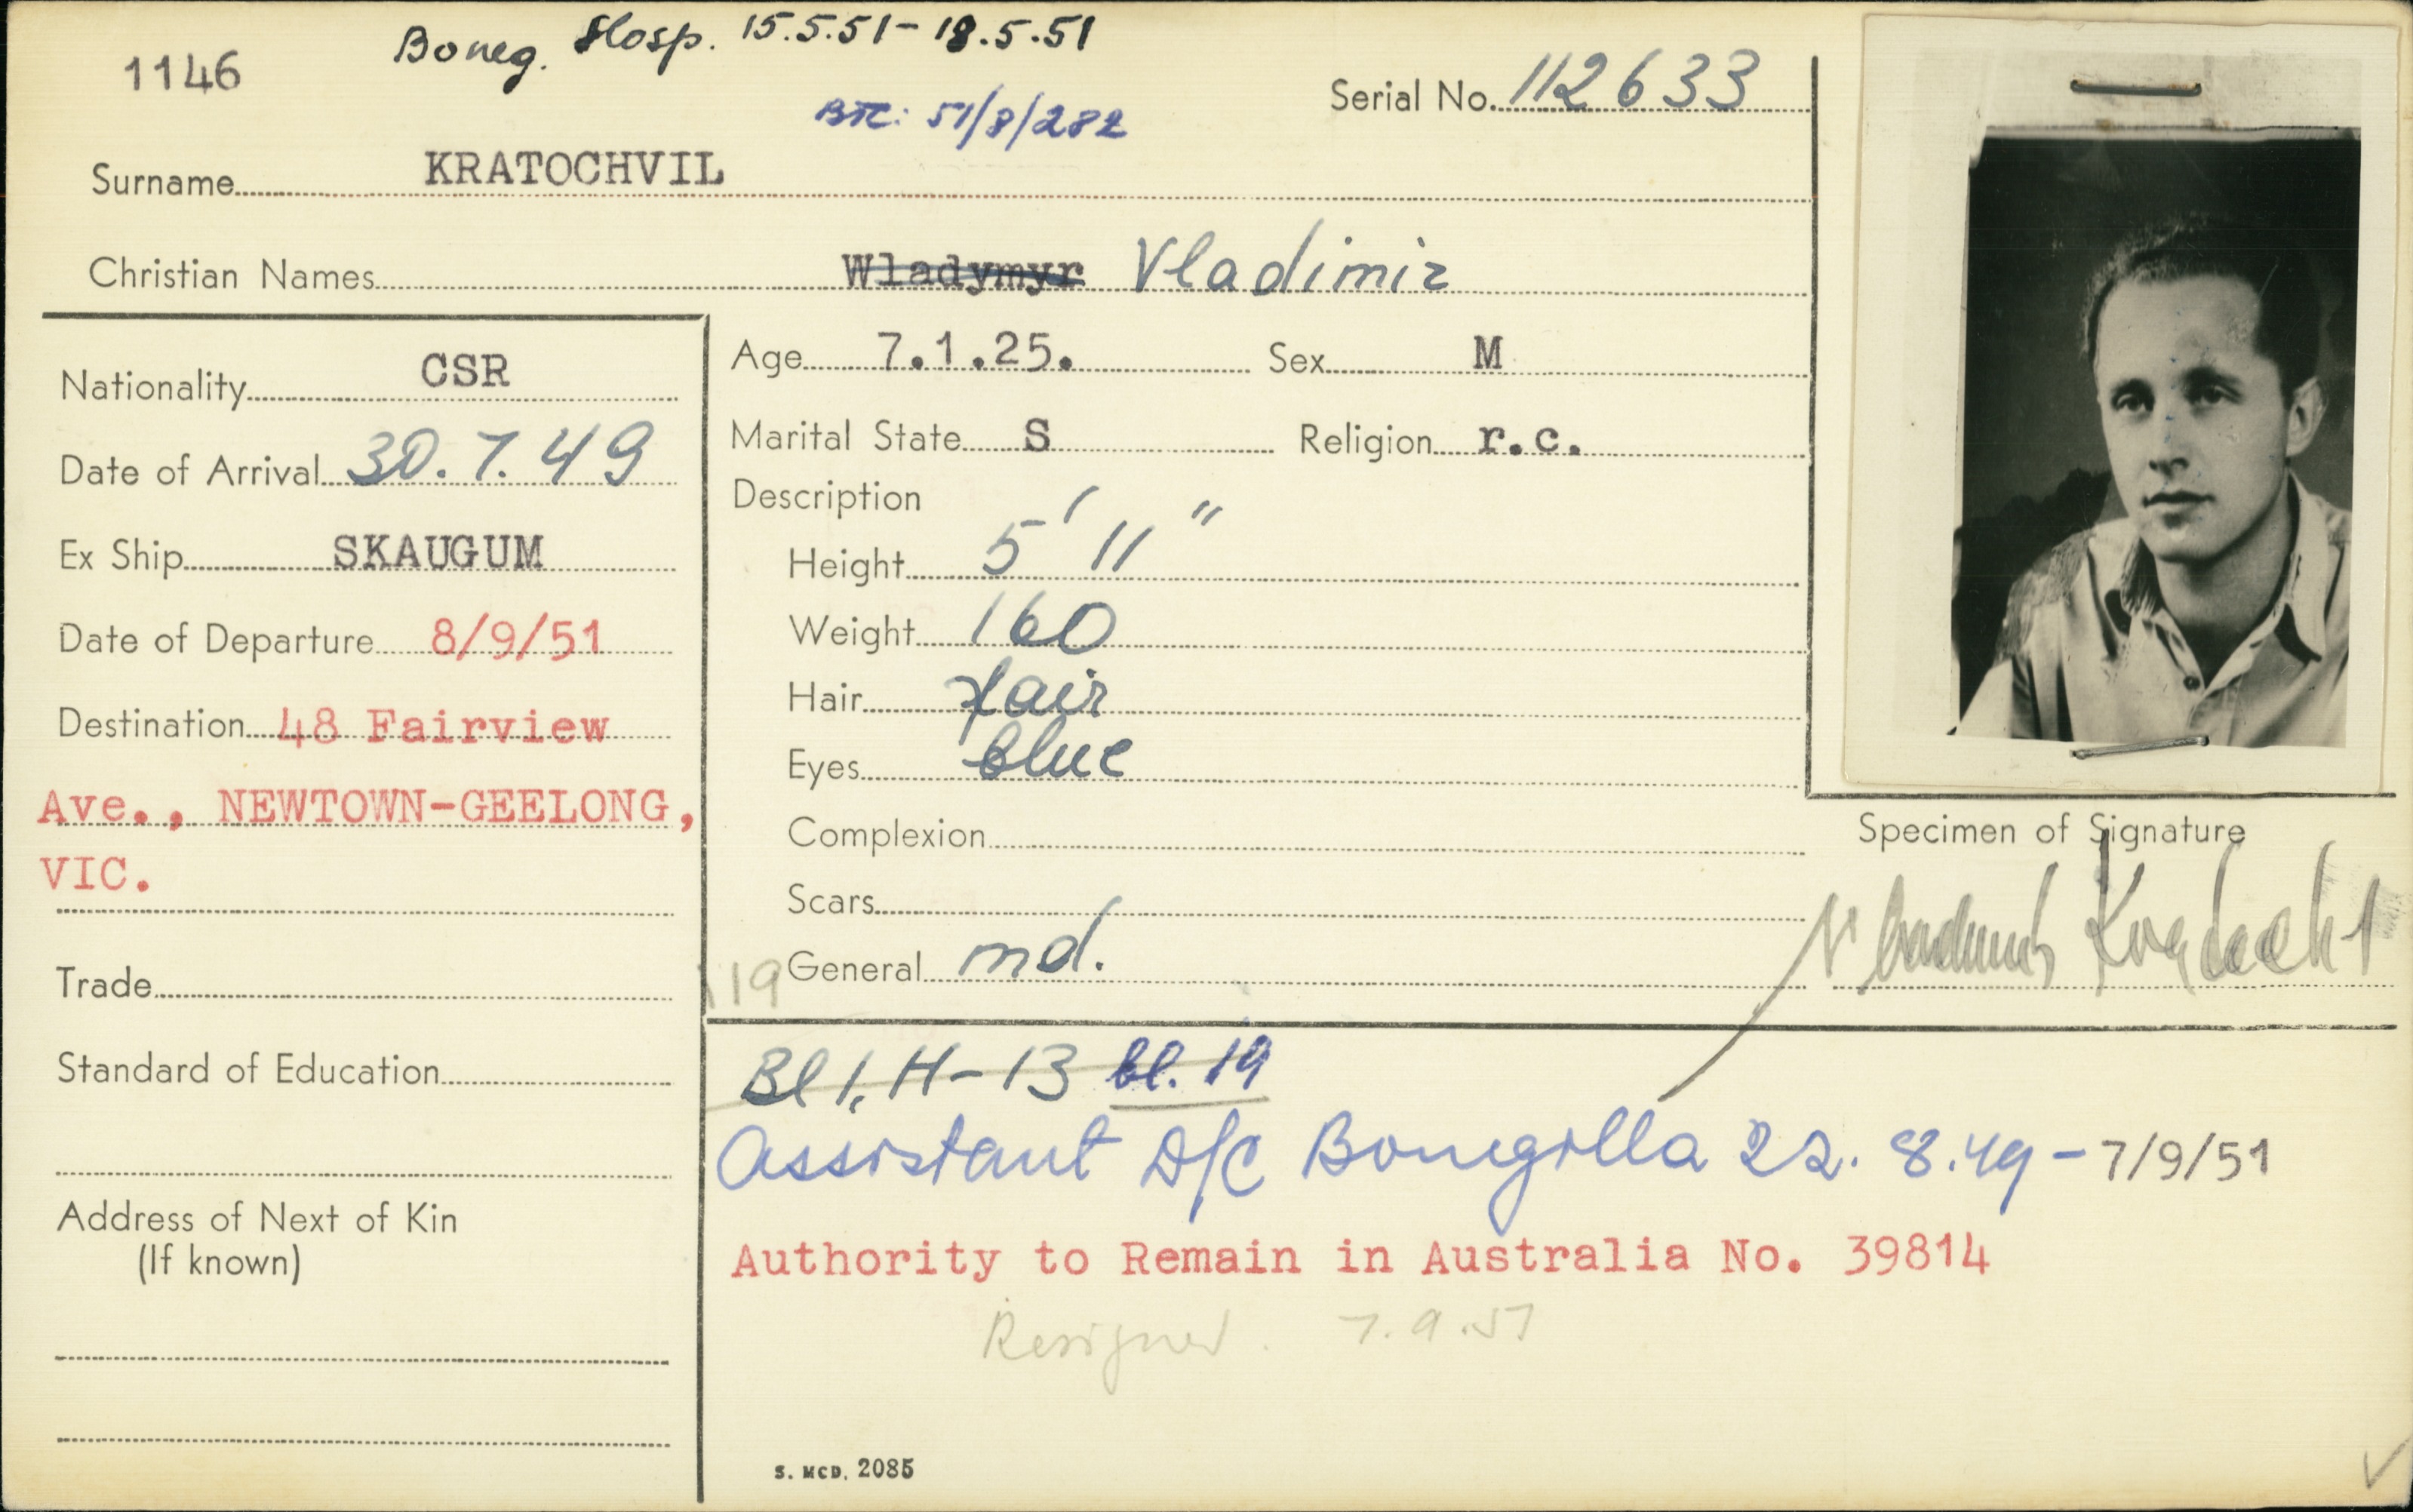 Boneg. Hosp. 15.5.51 - 18.5.51
1146
BTC: 51/8/282
Serial No. 112633
Surname KRATOCHVIL
Christian Names Wladymyr Vladimir
Nationality CSR
Date of Arrival 30.7.49
Ex Ship SKAUGUM
Date of Departure 8/9/51
Destination 48 Fairview
Ave., NEWTOWN-GEELONG,
VIC.
Trade
Standard of Education
Address of Next of Kin
(If known)
Age 7.1.25. Sex M
Marital State S Religion r.c.
Description
Height 5' 11"
Weight 160
Hair fair
Eyes blue
Complexion
Scars
119 General md.
Specimen of Signature
Bl 1, H-13 bl. 19
Assistant D/C Bonegilla 22.8.49 - 7/9/51
Authority to Remain in Australia No. 39814
Resigned. 7.9.51
S. MCD. 2085